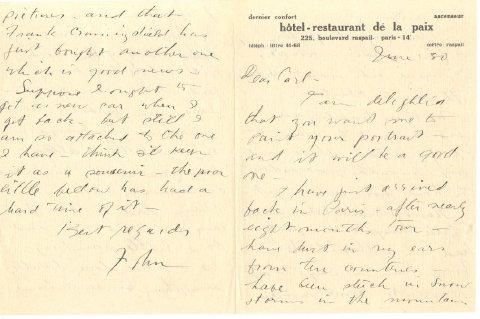 dernier confort
ascenseur
hôtel-restaurant de la paix
225, boulevard raspail - paris - 14e
téléph: littré 41-68
métro: raspail
June 30
Dear Carl -
I am delighted
that you want me to
paint your portrait
and it will be a good
one -
I have just arrived
back in Paris - after nearly
eight months tour -
have dust in my ears
from ten countries
have been stuck in snow
storms in the mountain
pictures - and that
Frank has
just bought another one
which is good news -
Suppose I ought to
get a new car when I
get back - but still I
am so attached to the one
I have - think I'll keep
it as a souvenir - the poor
little fellow has had a
hard time of it -
Best regards
John